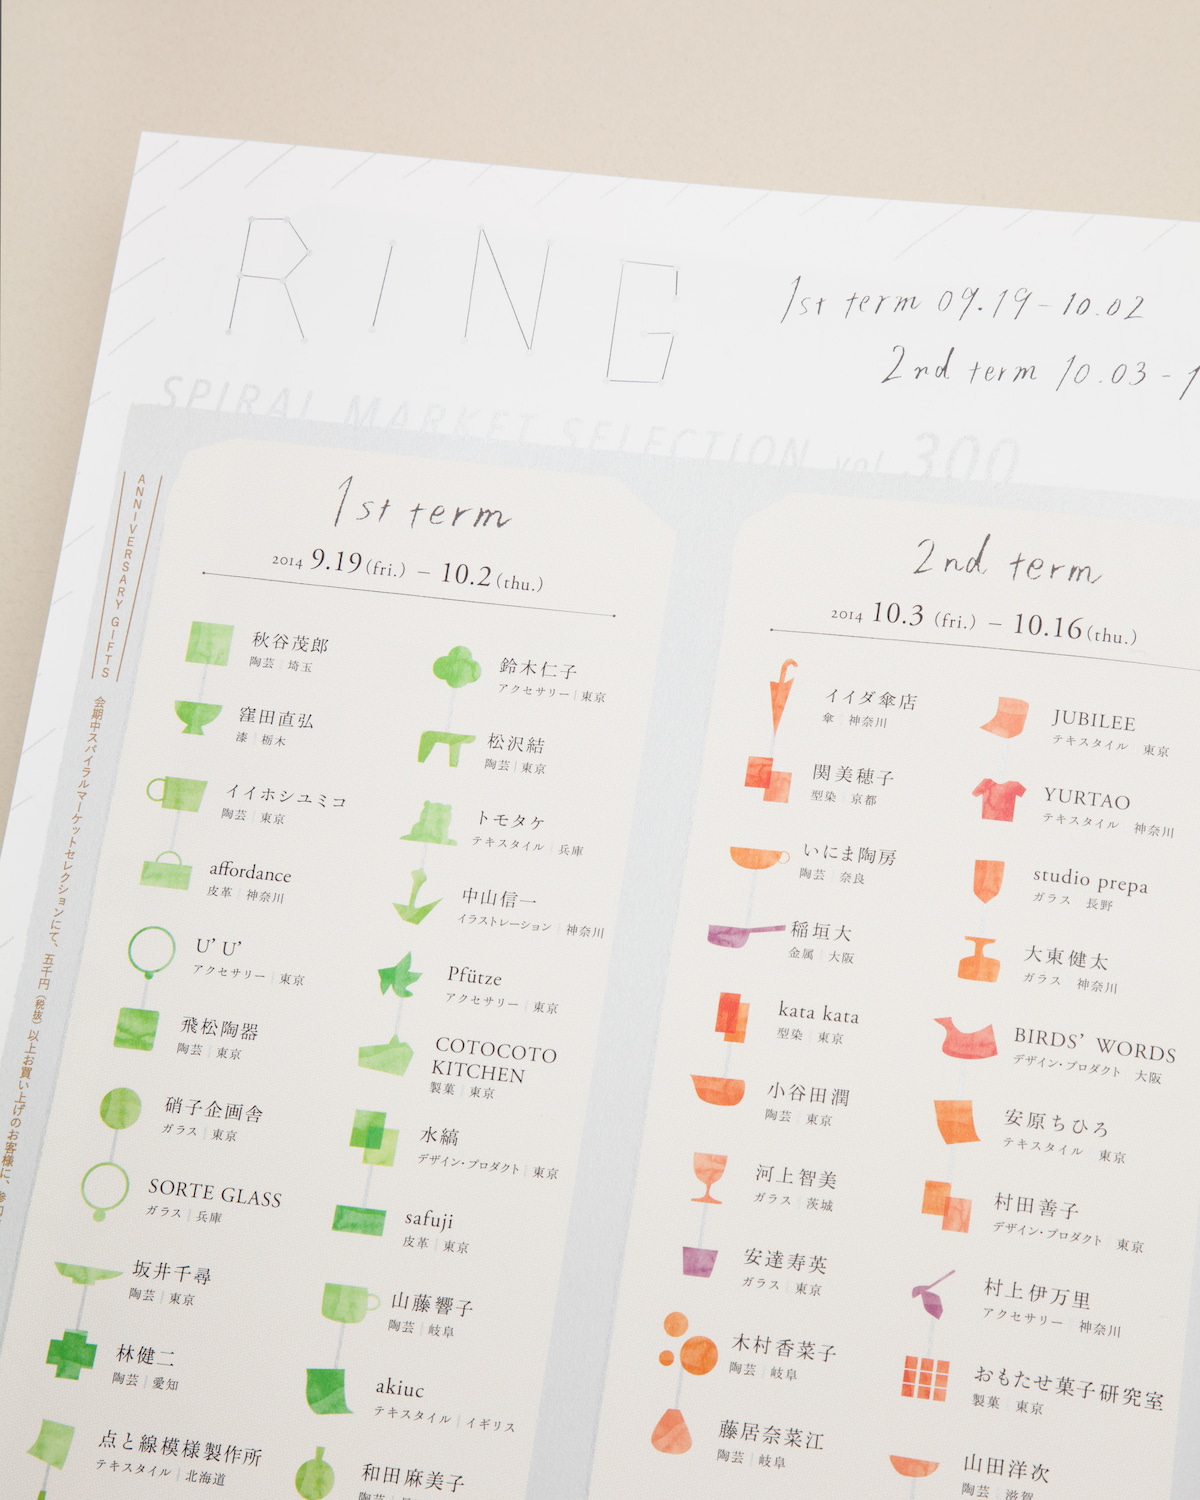 RING
1st term 09.19-10.02
2nd term 10.03-1
SPIRAL MARKET SELECTION vol.300
ANNIVERSARY GIFTS
会期中スパイラルマーケットセレクションにて、五千円（税抜）以上お買い上げのお客様に、
1st term
2014 9.19(fri.) – 10.2(thu.)
秋谷茂郎
陶芸｜埼玉
窪田直弘
漆｜栃木
イイホシユミコ
陶芸｜東京
affordance
皮革｜神奈川
U’ U’
アクセサリー｜東京
飛松陶器
陶芸｜東京
硝子企画舎
ガラス｜東京
SORTE GLASS
ガラス｜兵庫
坂井千尋
陶芸｜東京
林健二
陶芸｜愛知
点と線模様製作所
テキスタイル｜北海道
鈴木仁子
アクセサリー｜東京
松沢結
陶芸｜東京
トモタケ
テキスタイル｜兵庫
中山信一
イラストレーション｜神奈川
Pfütze
アクセサリー｜東京
COTOCOTO
KITCHEN
製菓｜東京
水縞
デザイン・プロダクト｜東京
safuji
皮革｜東京
山藤響子
陶芸｜岐阜
akiuc
テキスタイル｜イギリス
和田麻美子
陶芸
2nd term
2014 10.3 (fri.) – 10.16(thu.)
イイダ傘店
傘｜神奈川
関美穂子
型染｜京都
いにま陶房
陶芸｜奈良
稲垣大
金属｜大阪
kata kata
型染｜東京
小谷田潤
陶芸｜東京
河上智美
ガラス｜茨城
安達寿英
ガラス｜東京
木村香菜子
陶芸｜岐阜
藤居奈菜江
陶芸｜岐阜
JUBILEE
テキスタイル 東京
YURTAO
テキスタイル 神奈川
studio prepa
ガラス 長野
大東健太
ガラス 神奈川
BIRDS’ WORDS
デザイン・プロダクト 大阪
安原ちひろ
テキスタイル 東京
村田善子
デザイン・プロダクト 東京
村上伊万里
アクセサリー 神奈川
おもたせ菓子研究室
製菓｜東京
山田洋次
陶芸｜滋賀